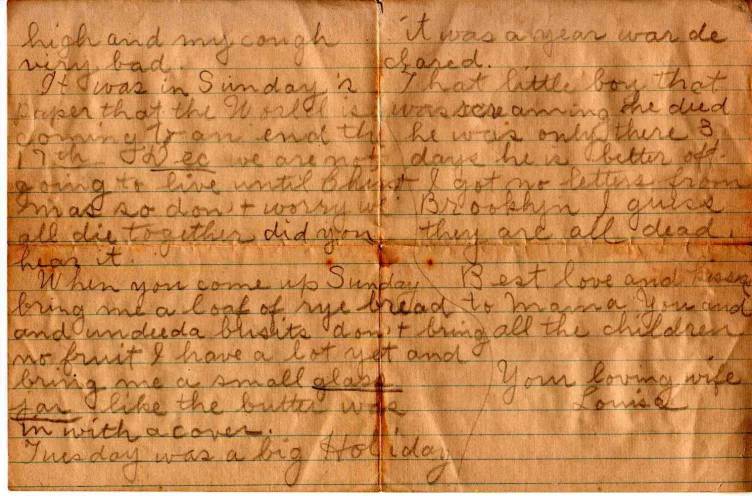 high and my cough
very bad.
It was in Sunday's
paper that the World is
coming to an end th
17th Dec we are not
going to live until Christ
mas so don't worry we'
all die together did you
hear it.
When you come up Sunday
bring me a loaf of rye bread
and undeeda busits don't bring
no fruit I have a lot yet and
bring me a small glass
jar like the butter was
in with a cover.
Tuesday was a big Holiday
it was a year war de
clared.
That little boy that
was screaming he died
he was only there 3
days he is better off.
I got no letters from
Brooklyn I guess
they are all dead.
Best love and kisses
to Mama You and
all the children
Your loving wife
Louise